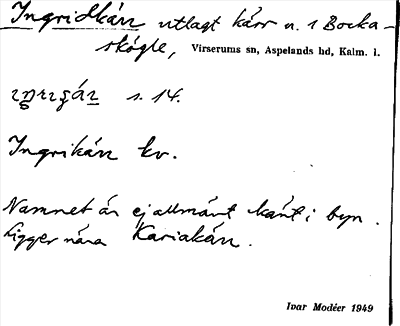 Ingridkán utlagt kärr n. i Bocka-
skógle, Virserums sn, Aspelands hd, Kalm. l.
s. 14.
Ingrikán kv.
Namnet är ej allmänt känt i byn.
Ligger nära Kariakán.
Ivar Modéer 1949